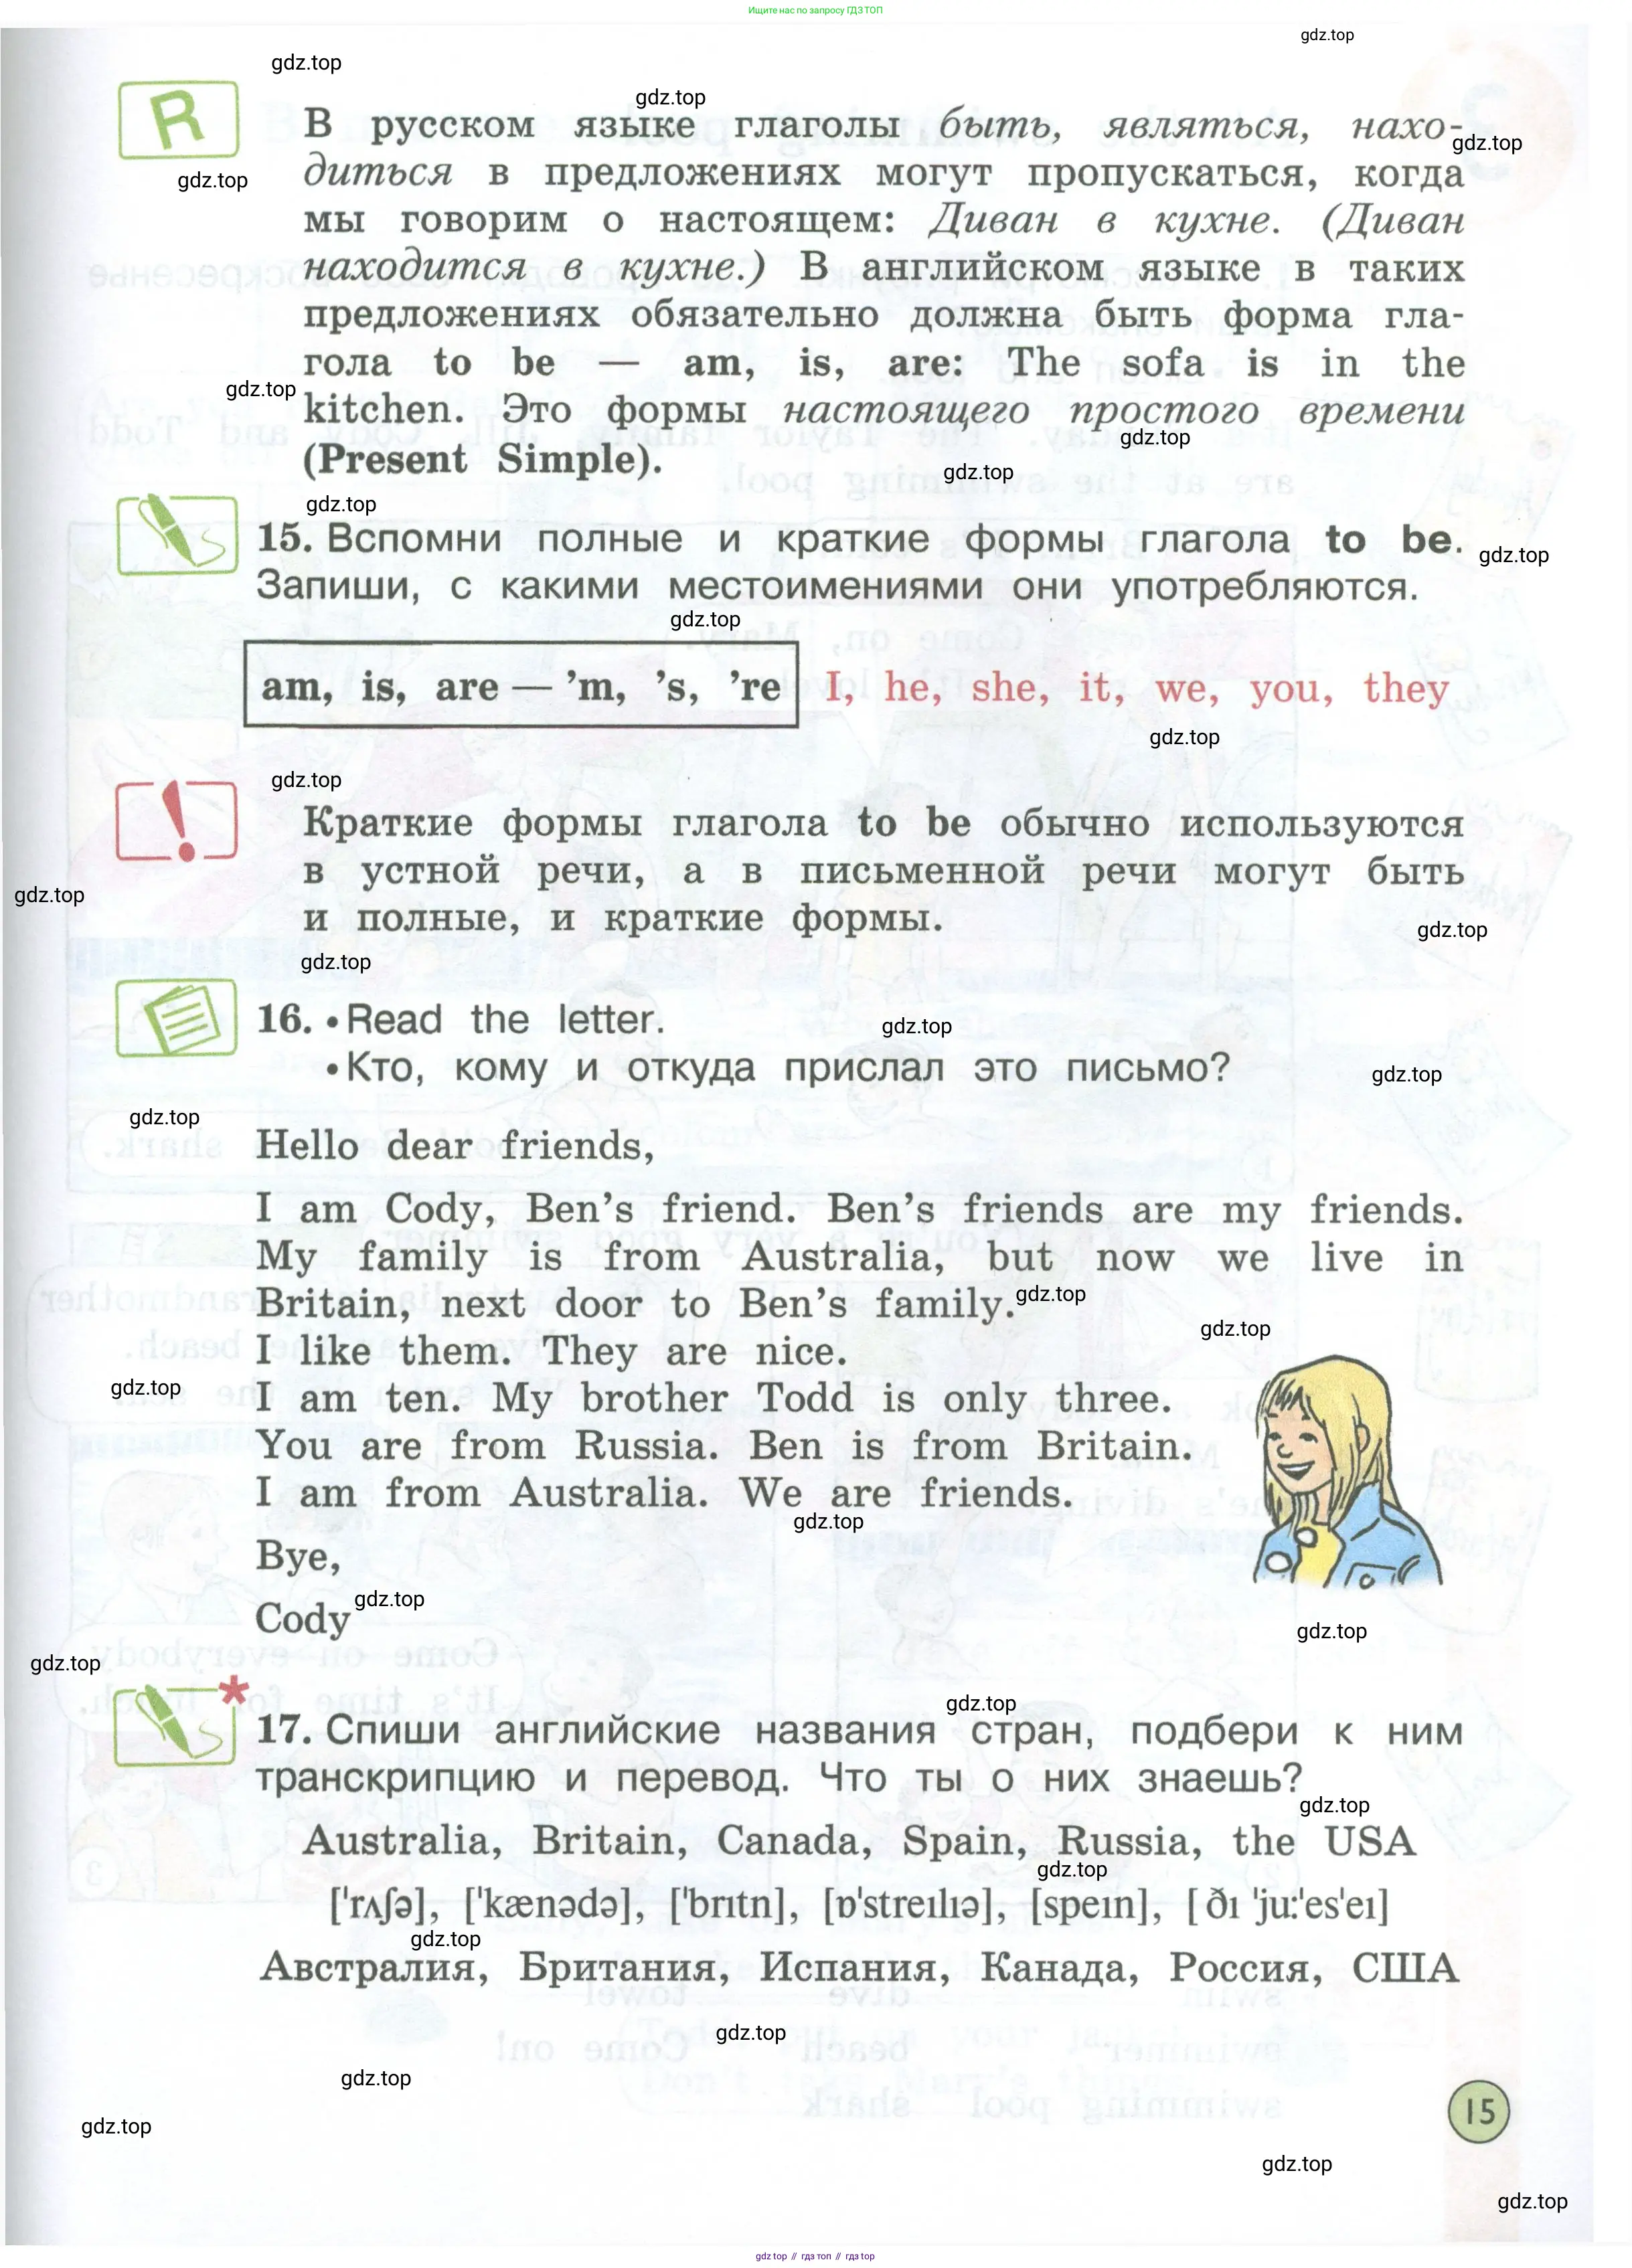 Ищите нас по запросу ГДЗ ТОП
gdz.top
gdz.top
gdz.top
R
В русском языке глаголы быть, являться, нахо-
gdz.top
диться в предложениях могут пропускаться, когда
gdz.top
мы говорим о настоящем: Диван в кухне. (Диван
находится в кухне.) В английском языке в таких
предложениях обязательно должна быть форма гла-
гола to be — am, is, are: The sofa is in the
gdz.top
kitchen. Это формы настоящего простого времени
gdz.top
(Present Simple).
gdz.top
gdz.top
15. Вспомни полные и краткие формы глагола to be.
gdz.top
Запиши, с какими местоимениями они употребляются.
gdz.top
am, is, are — ’m, ’s, ’re I, he, she, it, we, you, they
gdz.top
gdz.top
!
Краткие формы глагола to be обычно используются
в устной речи, а в письменной речи могут быть
gdz.top
и полные, и краткие формы.
gdz.top
gdz.top
16. • Read the letter.
gdz.top
• Кто, кому и откуда прислал это письмо?
gdz.top
gdz.top
Hello dear friends,
I am Cody, Ben’s friend. Ben’s friends are my friends.
My family is from Australia, but now we live in
Britain, next door to Ben’s family.
gdz.top
gdz.top
I like them. They are nice.
gdz.top
I am ten. My brother Todd is only three.
You are from Russia. Ben is from Britain.
I am from Australia. We are friends.
gdz.top
Bye,
gdz.top
Cody
gdz.top
gdz.top
*
gdz.top
17. Спиши английские названия стран, подбери к ним
транскрипцию и перевод. Что ты о них знаешь?
gdz.top
Australia, Britain, Canada, Spain, Russia, the USA
gdz.top
['rʌʃə], ['kænədə], ['brɪtn], [ɒ'streɪlɪə], [speɪn], [ ðɪ 'ju:'es'eɪ]
gdz.top
Австралия, Британия, Испания, Канада, Россия, США
gdz.top
gdz.top
15
gdz.top
gdz.top
gdz.top
gdz top // гдз топ // gdz top